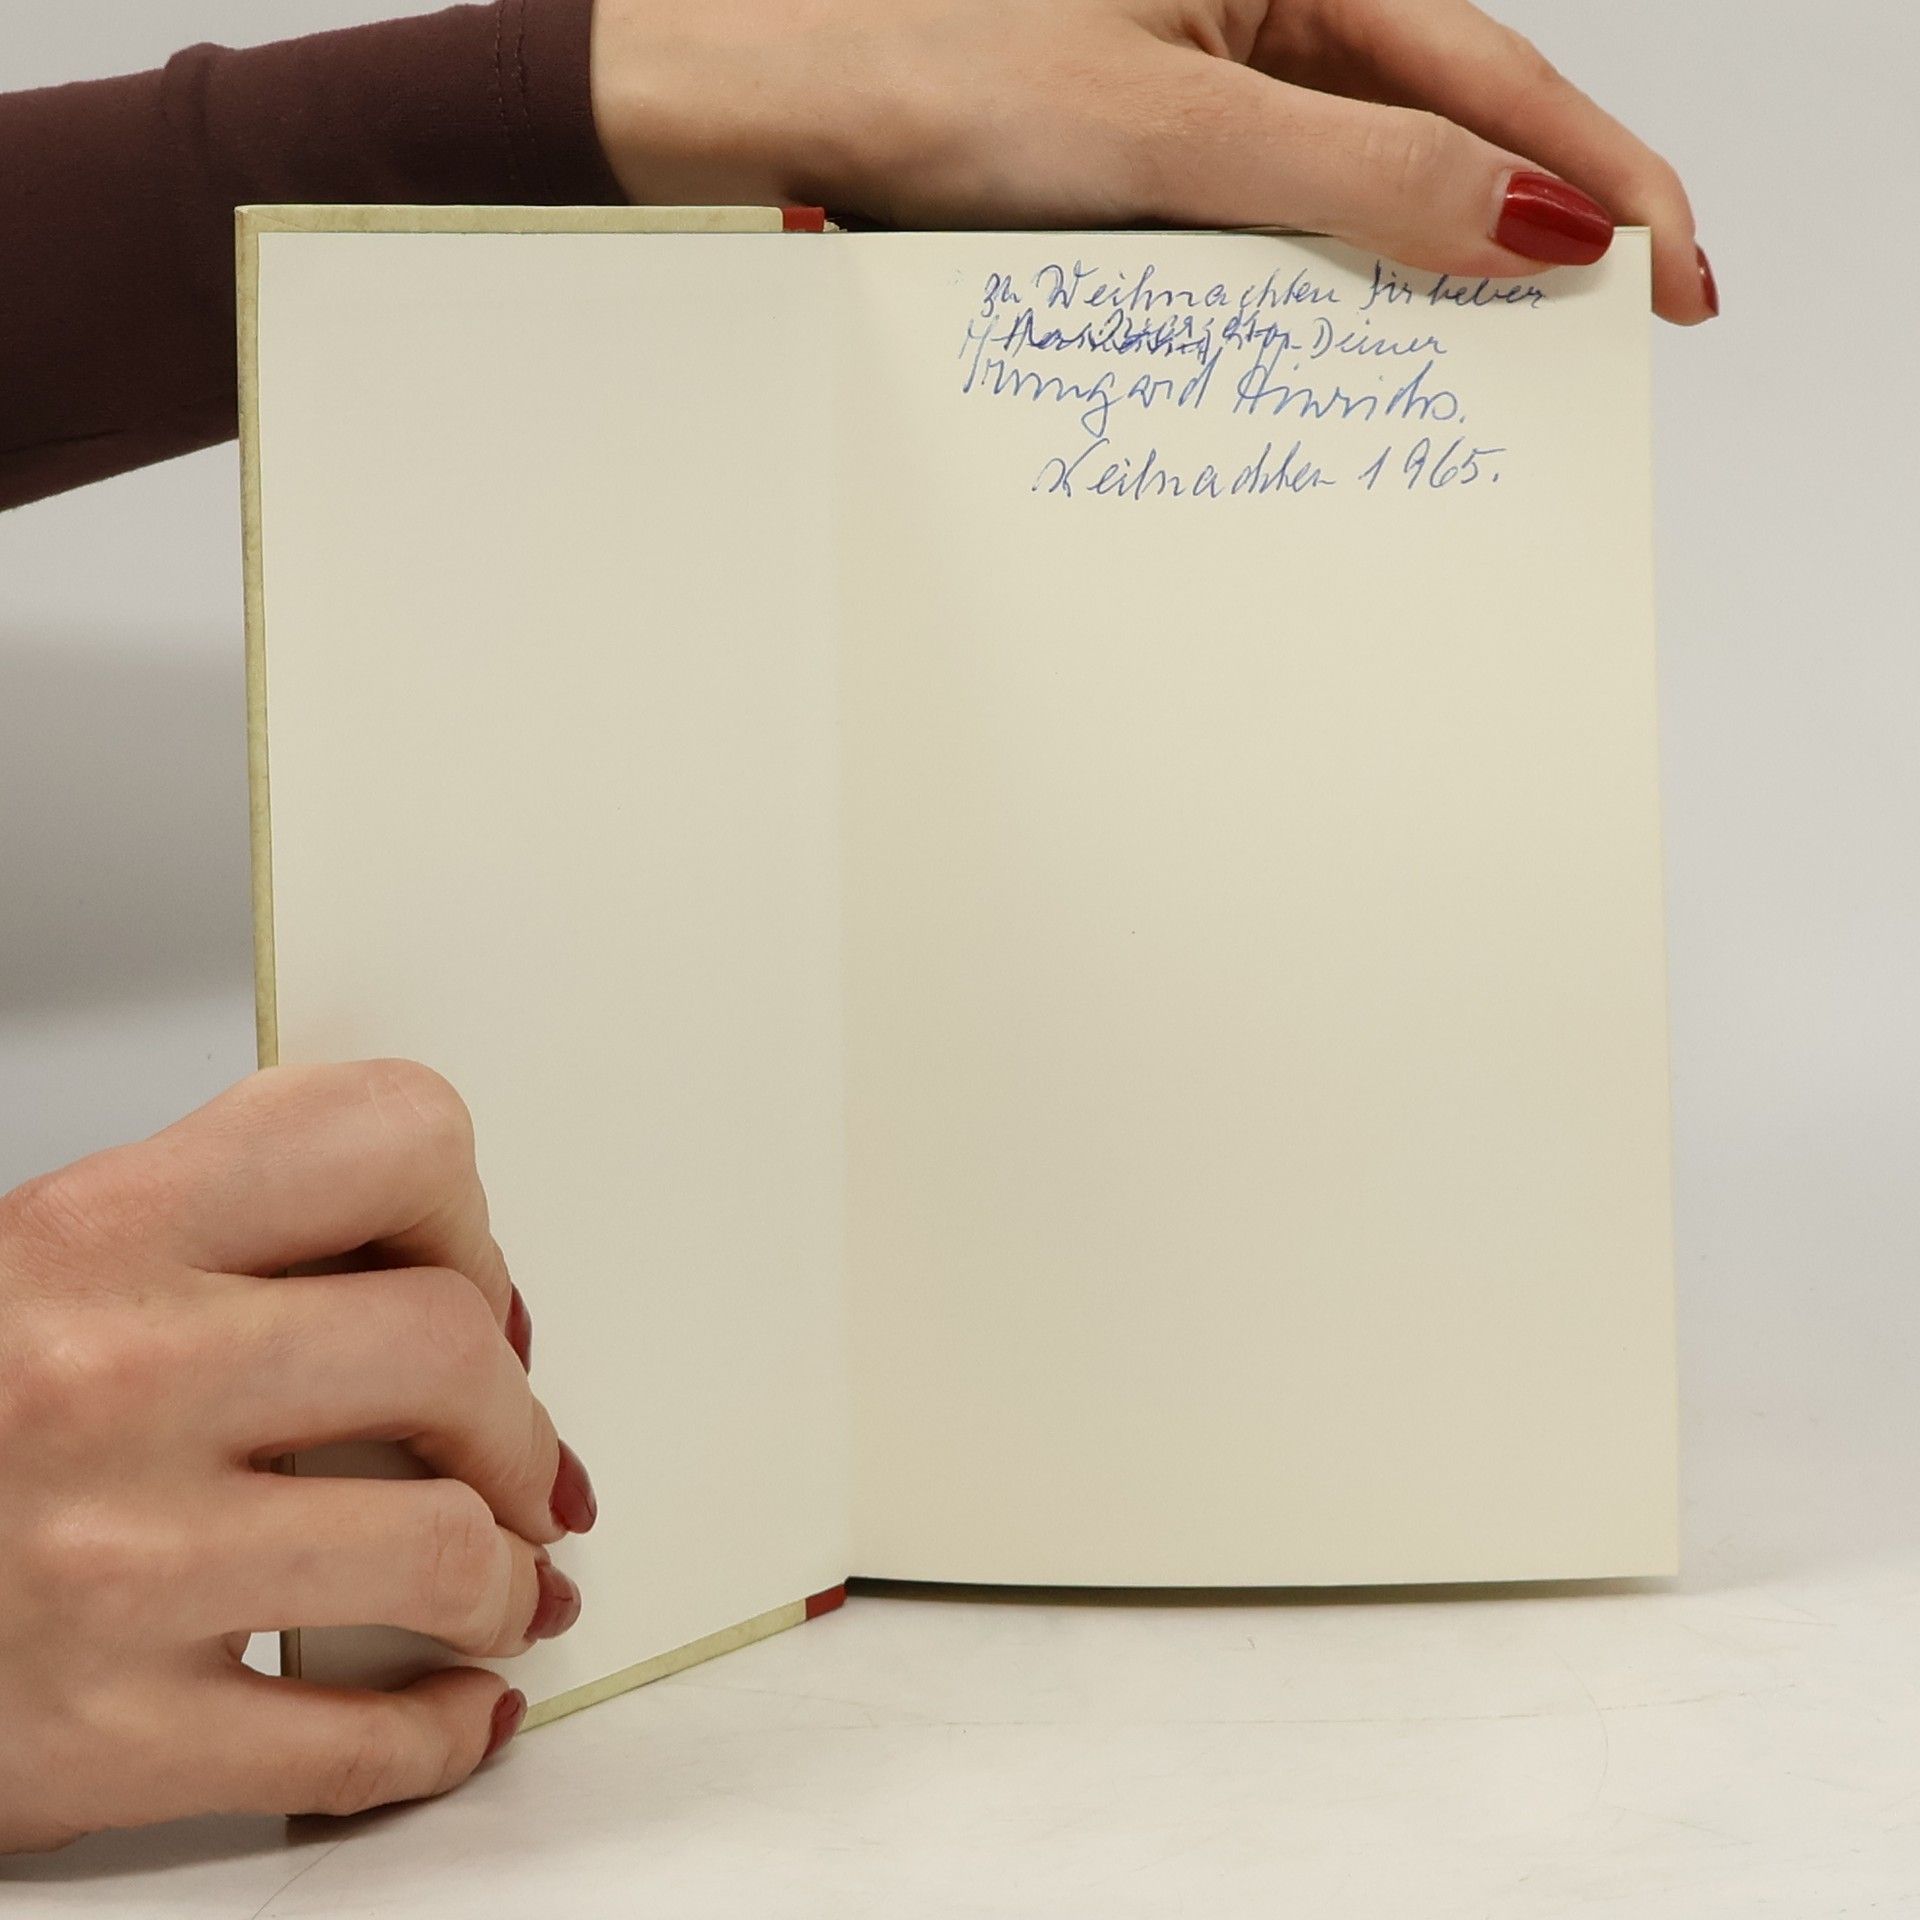 zu Weihnachten für lieber
Deiner
Irmgard Hinrichs.
Weihnachten 1965.